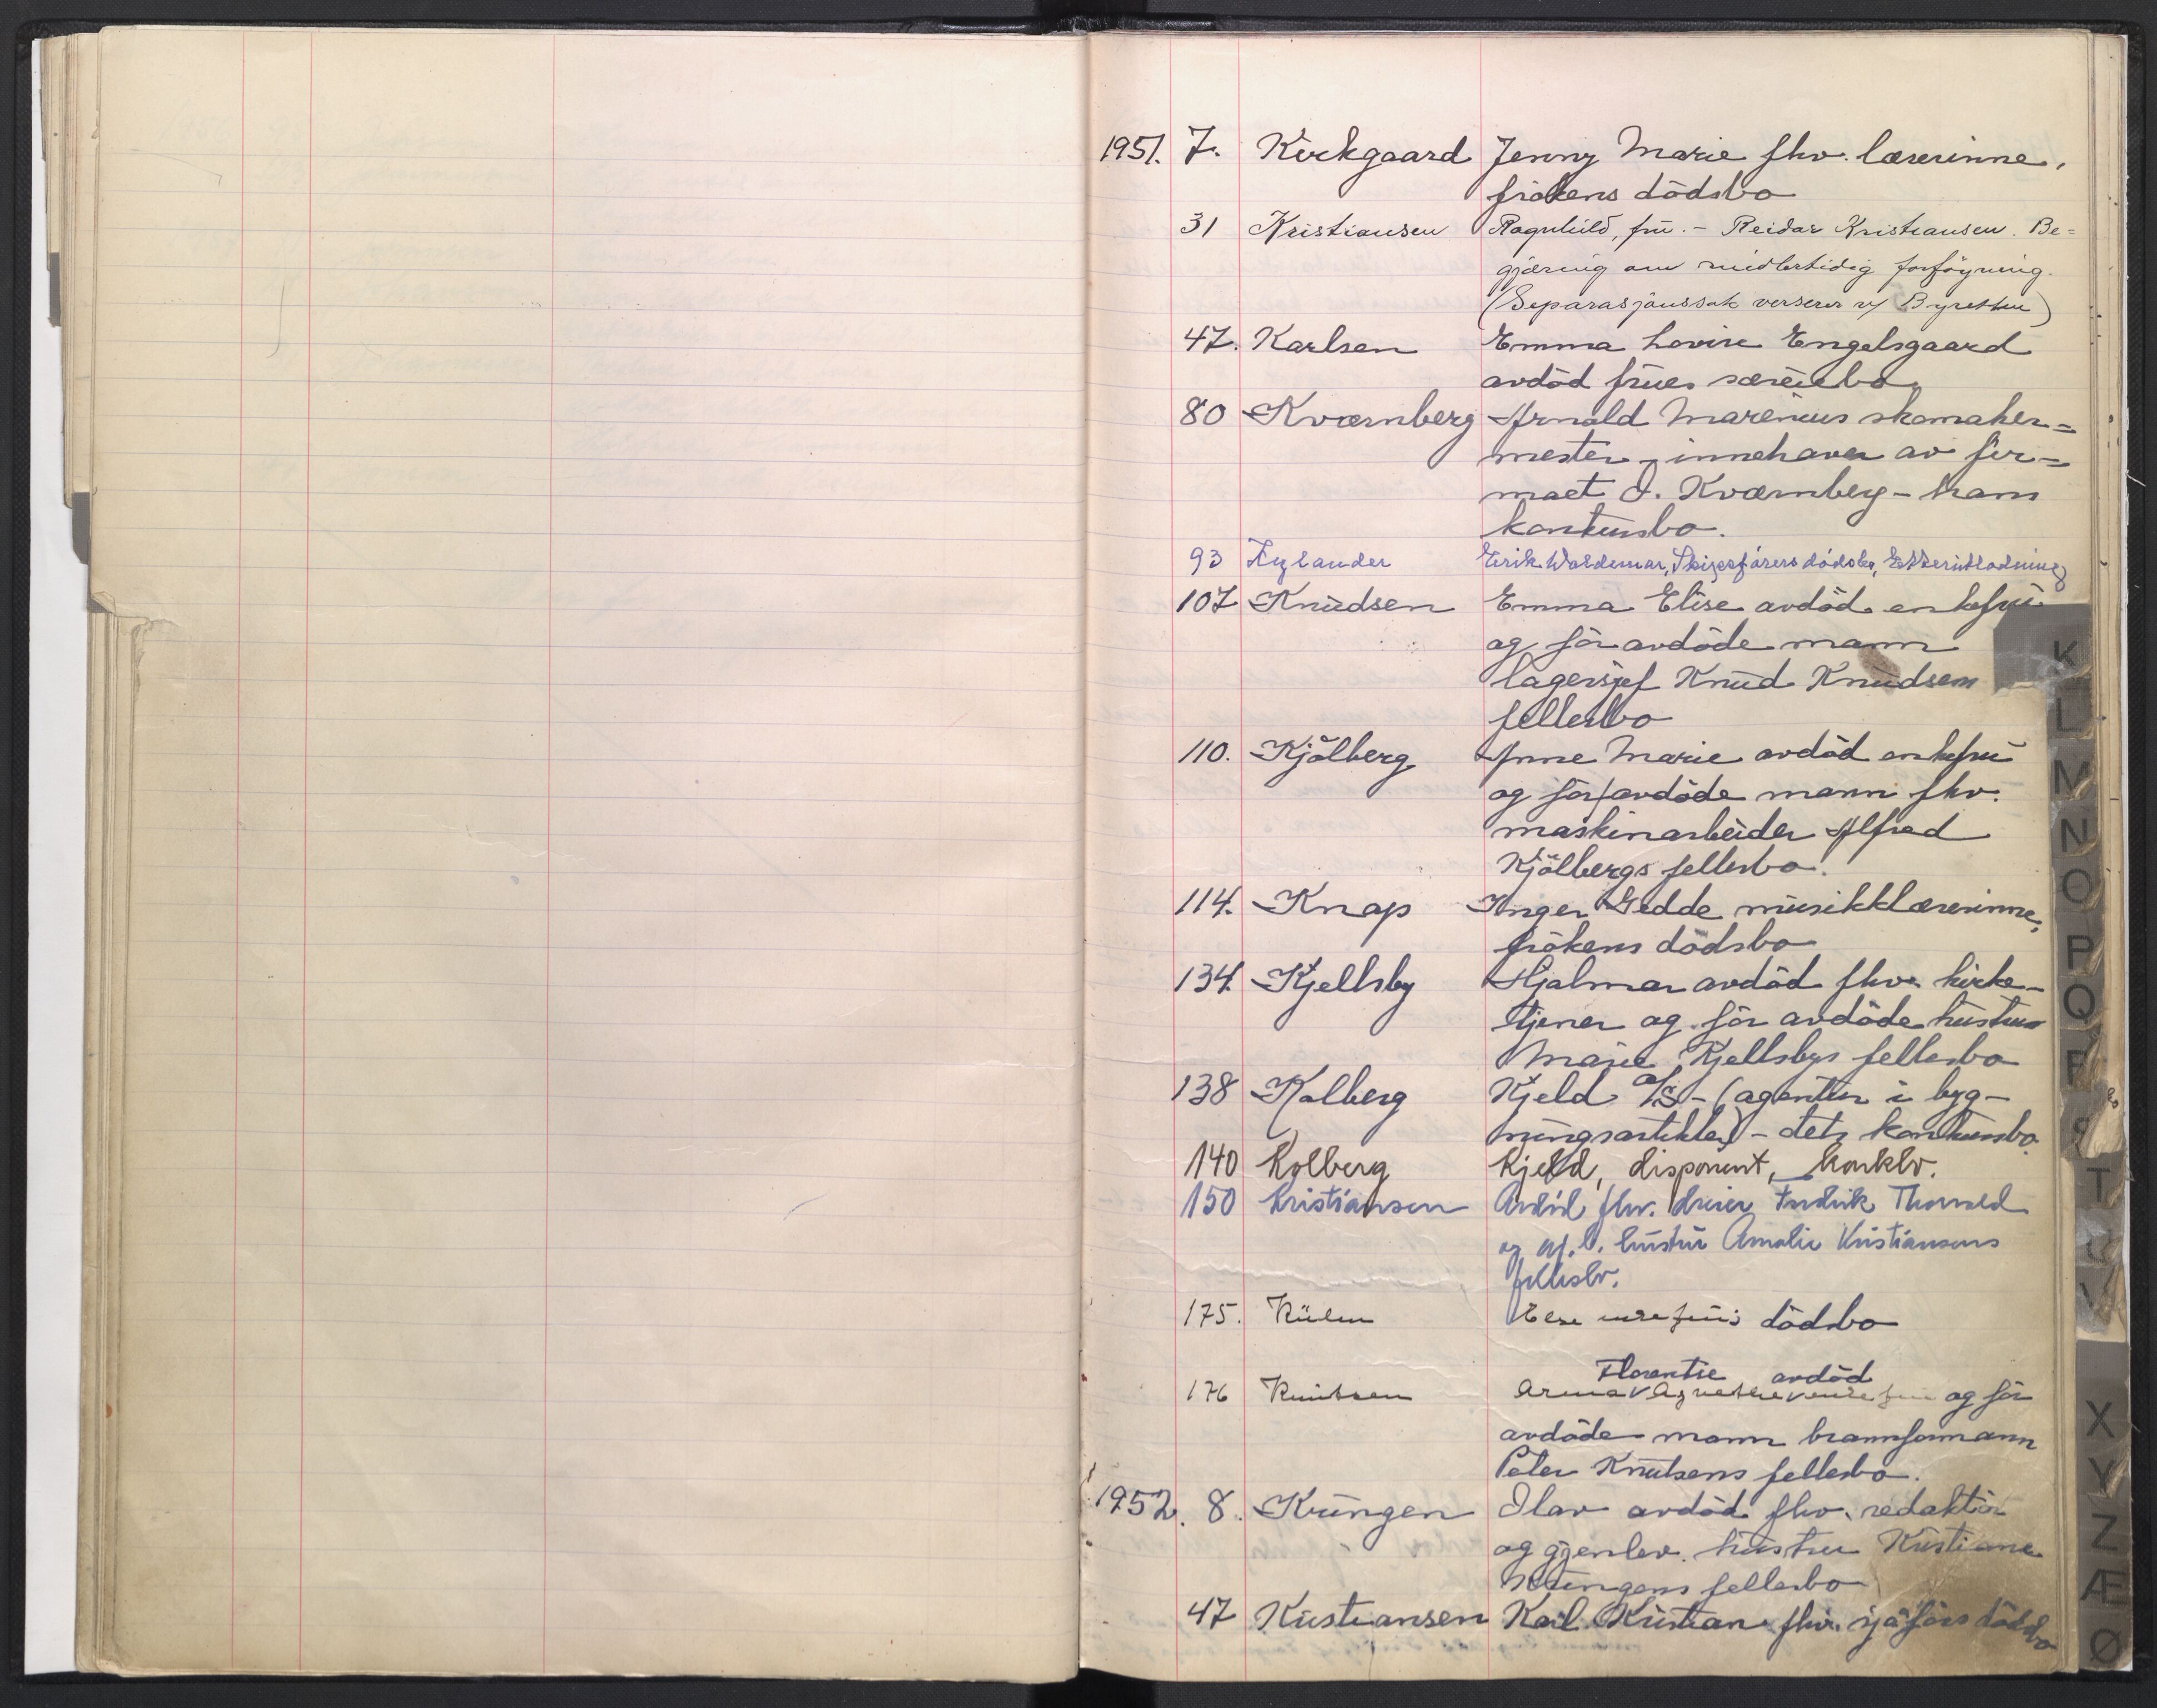 1951. 7. Kirkgaard Jenny Marie fhv. lærerinne,
frøkens dødsbo
31 Kristiansen Ragnhild, fru. - Reidar Kristiansen. Be=
gjæring om midlertidig forføyning.
(Separasjonssak verserer v/ Byretten)
47. Karlsen Emma Lovise Engelsgaard
avdød frues særeiebo
80 Kværnberg Arnold Marenius skomaker=
mester, innehaver av fir=
maet A. Kværnberg - hans
konkursbo.
93 Kylander Erik Waldemar, Skipsførers dødsbo, Etterutlodning
107 Knudsen Emma Elise avdød enkefru
og før avdøde mann
lagersjef Knud Knudsens
fellesbo
110. Kjølberg Anne Marie avdød enkefru
og før avdøde mann fhv.
maskinarbeider Alfred
Kjølbergs fellesbo.
114. Knap Inger Gedde musikklærerinne,
frøkens dødsbo
134. Kjellsby Hjalmar avdød fhv. kirke-
tjener og før avdøde hustru
Marie Kjellsbys fellesbo
138 Kolberg Kjeld A/S - (agentur i byg-
ningsartikler) - dets konkursbo.
140 Kolberg Kjeld, disponent, konkbo.
150 Kristiansen Avdød fhv. dreier Fredrik Thorvald
og gj.l. hustru Amalie Kristiansens
fellesbo.
175. Külen Else enkefrus dødsbo
Florentse avdød
176 Knutsen Anna v Agnethe v enkefru og før
avdøde mann brannformann
Peter Knutsens fellesbo.
1952. 8. Kringen Olav avdød fhv. redaktør
og gjenlev. hustru Kristiane
Kringens fellesbo
47 Kristiansen Karl Kristian fhv. sjåførs dødsbo
K
L
M
N
O
P
Q
R
S
T
U
V
X
Y
Z
Æ
Ø